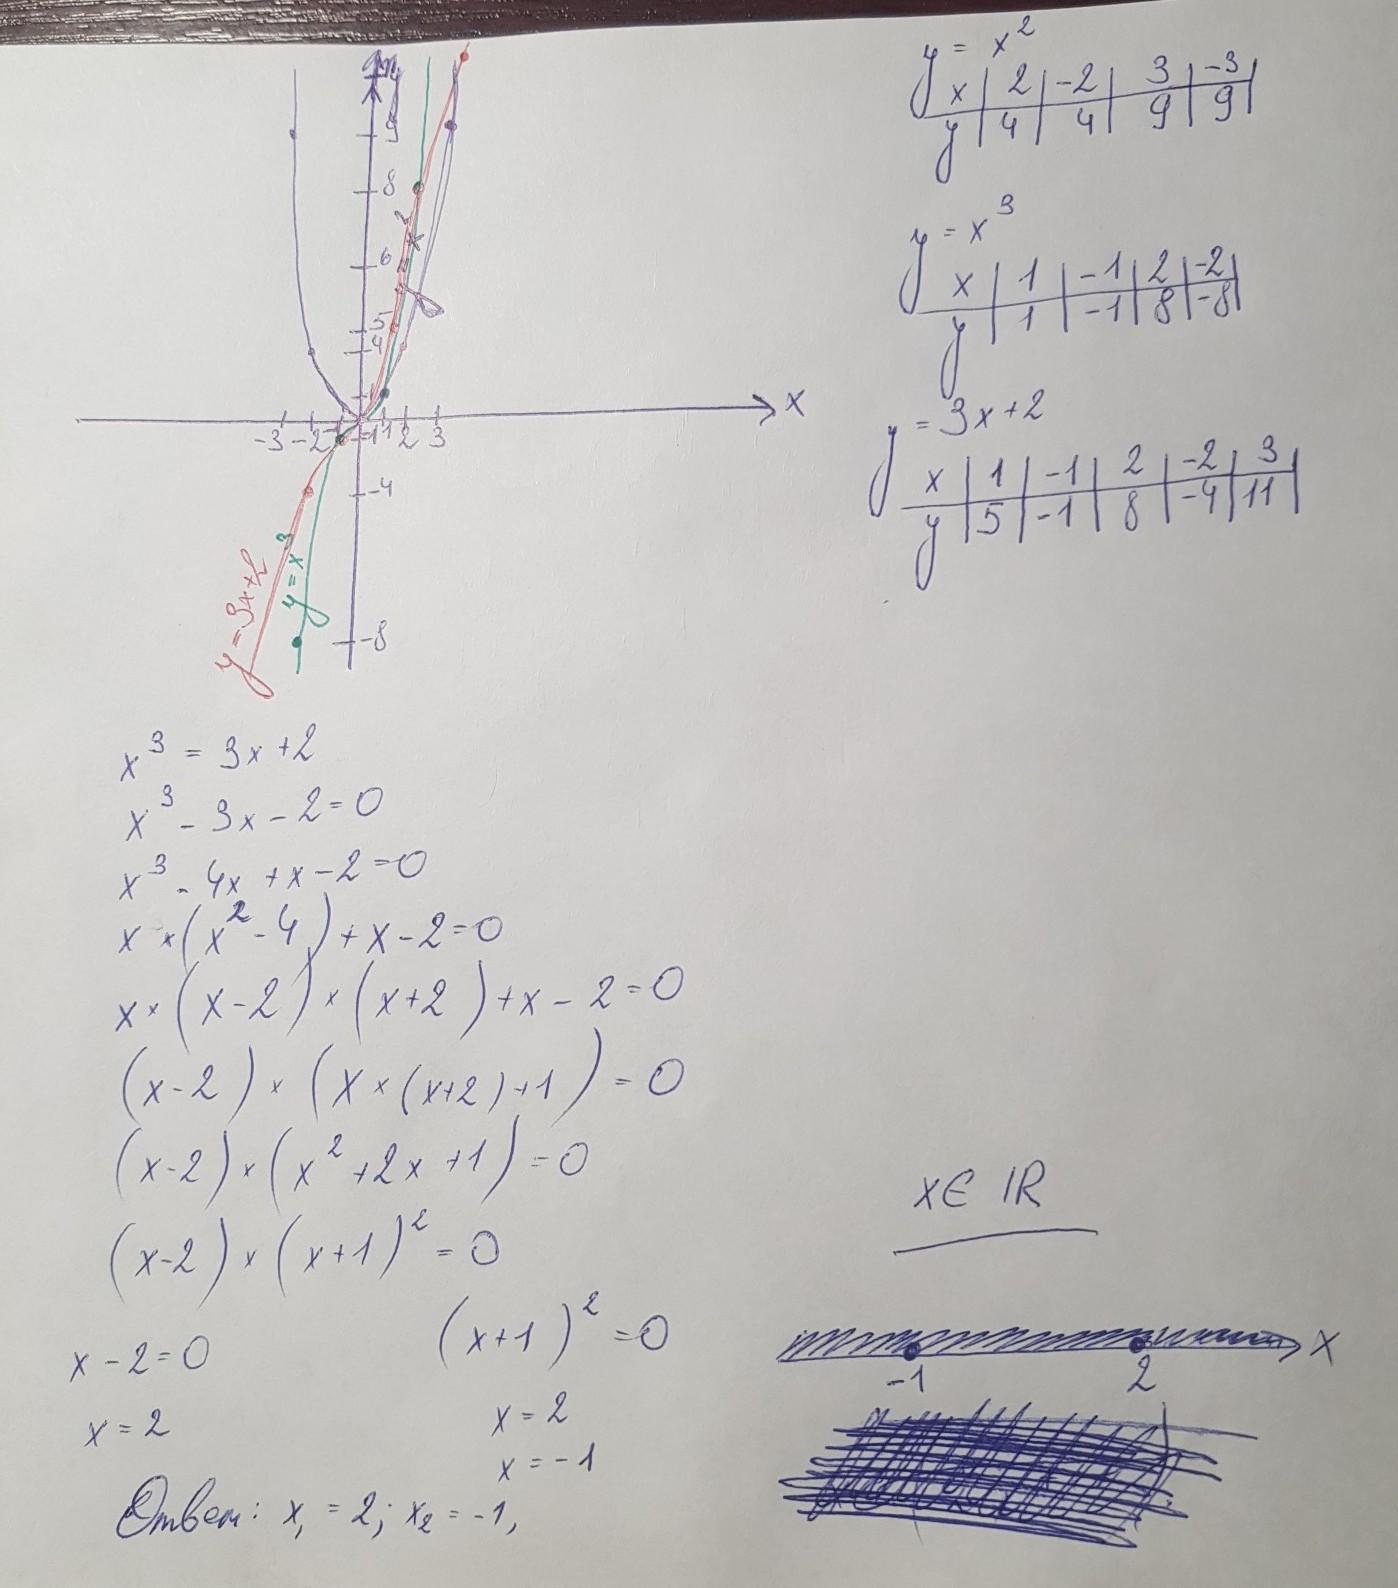 9
8
6
5
4
1
-3 -2 -1 1 2 3 x
-1
-4
-8
y = x²
y = x³
y = 3x+2
y = x²
x | 2 | -2 | 3 | -3 |
y | 4 | 4 | 9 | 9 |
y = x³
x | 1 | -1 | 2 | -2 |
y | 1 | -1 | 8 | -8 |
y = 3x+2
x | 1 | -1 | 2 | -2 | 3 |
y | 5 | -1 | 8 | -4 | 11 |
x³ = 3x+2
x³ - 3x - 2 = 0
x³ - 4x + x - 2 = 0
x × (x² - 4) + x - 2 = 0
x × (x-2) × (x+2) + x - 2 = 0
(x-2) × (x × (x+2) + 1) = 0
(x-2) × (x² + 2x + 1) = 0
(x-2) × (x+1)² = 0
x - 2 = 0 (x+1)² = 0
x = 2 x = 2
x = -1
Ответ: x₁ = 2; x₂ = -1,
x ∈ ℝ
-1 2 x